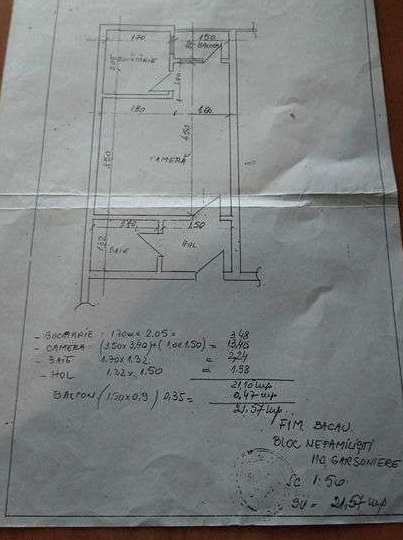 170
150
BALCON
BUCATARIE
2.05
180
160
450
350
CAMERA
170
150
1.32
BAIE
HOL
- BUCATARIE - 1.70 x 2.05 = 3.48
- CAMERA - (3.50 x 3.40) + (1.0 x 1.50) = 13.40
- BAIE 1.70 x 1.32 = 2.24
- HOL 1.32 x 1.50 = 1.98
21,10 mp
BALCON (1.50 x 0.9) 0,35 = 0,47 mp
21.57 mp
FIM BACAU
BLOC NEFAMILIȘTI
110 GARSONIERE
SC 1:50
SU = 21,57 mp